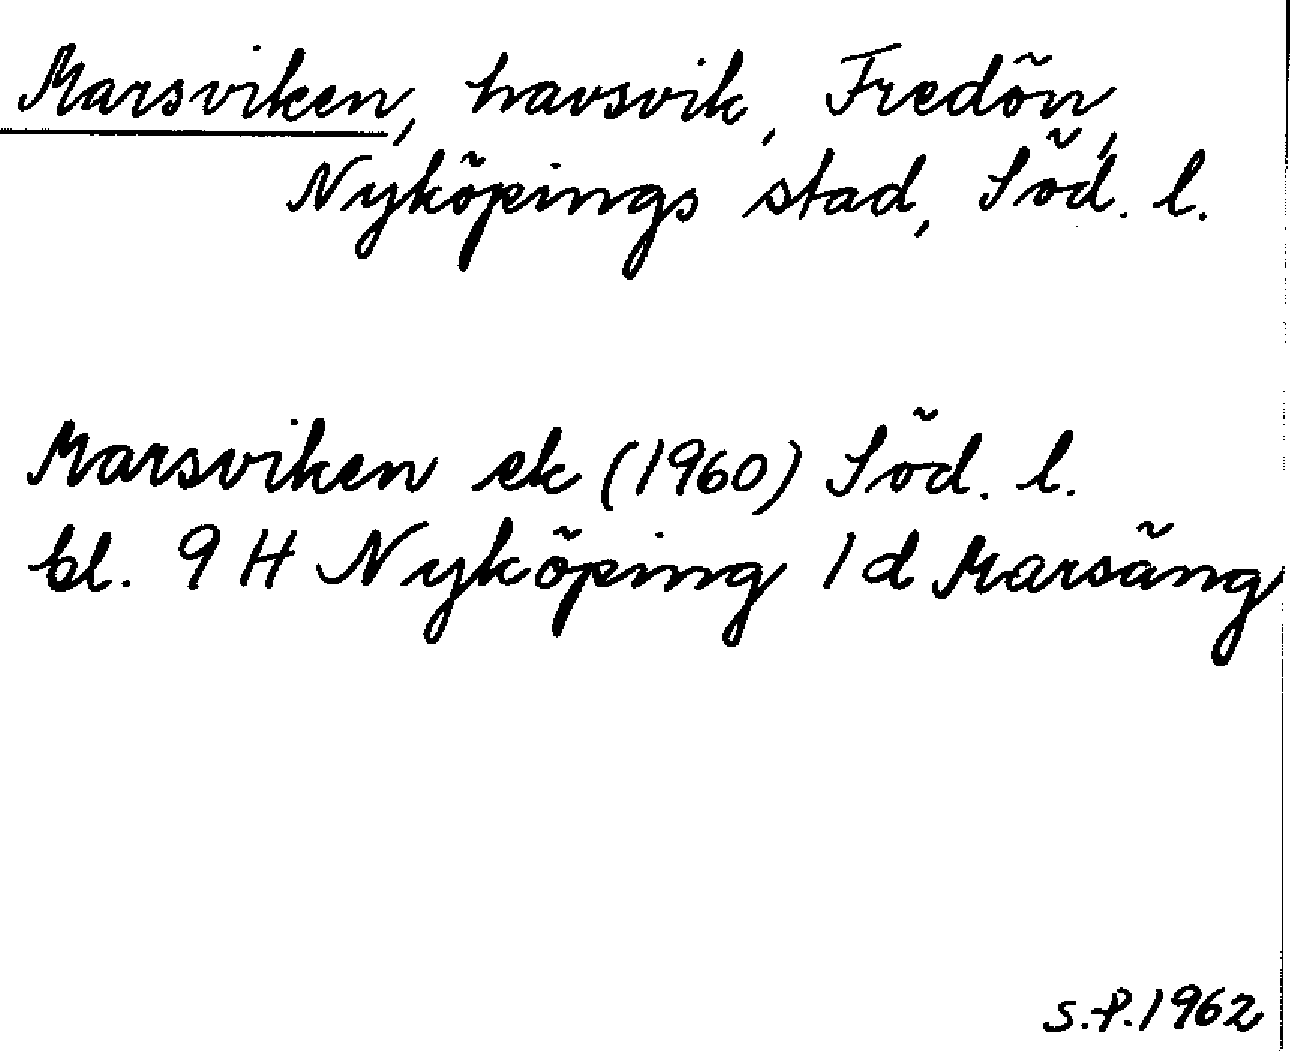 Marsviken, havsvik, Fredön,
Nyköpings stad, Söd. l.
Marsviken ek (1960) Söd. l.
bl. 9 H Nyköping 1 d Marsäng
S.P. 1962